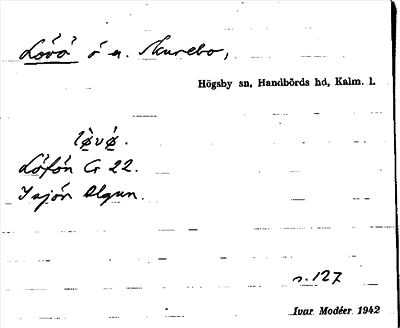 Lövö ö n. Skurebo,
Högsby sn, Handbörds hd, Kalm. l.
lø̀vǿ.
Löfön G 22.
I sjön Algun.
n. 127
Ivar Modéer 1942